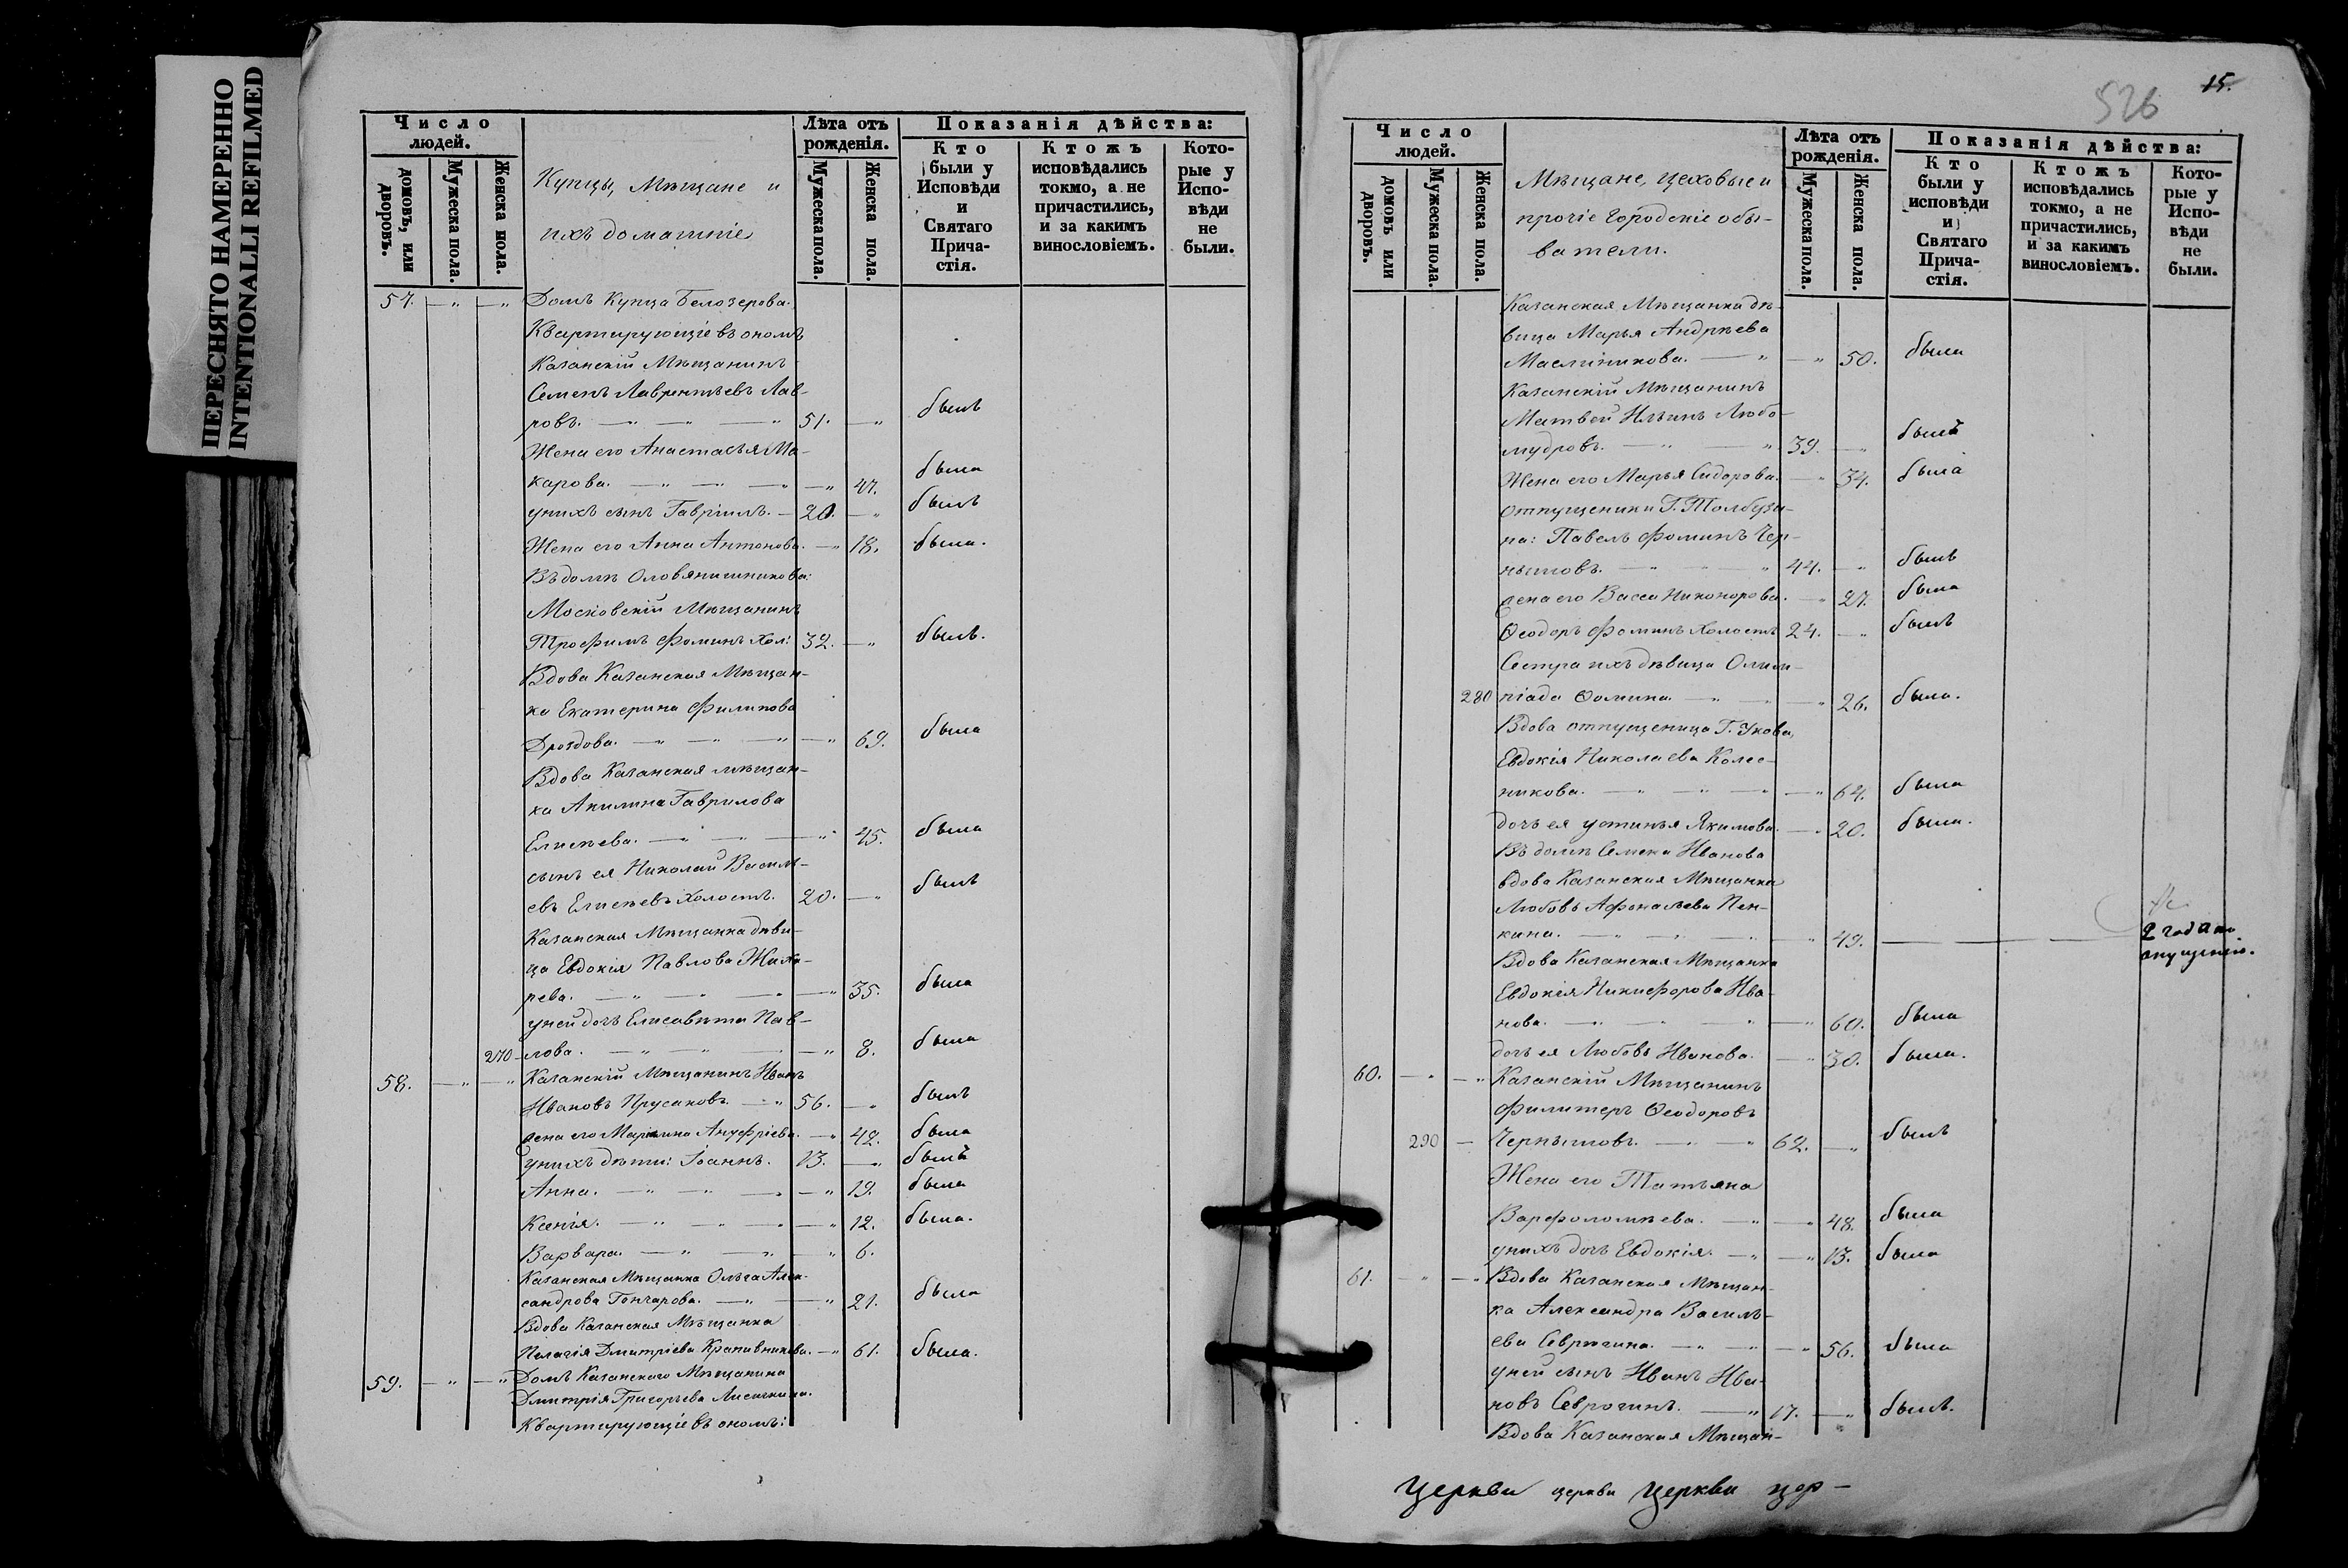 ПЕРЕСНЯТО НАМЕРЕННО
INTENTIONALLI REFILMED
Число людей.
домовъ, или дворовъ.
Мужеска пола.
Женска пола.
Купцы, Мѣщане и
ихъ домашніе
Лѣта отъ рожденія.
Мужеска пола.
Женска пола.
Показанія дѣйства:
Кто были у Исповѣди и Святаго Прича-стія.
Ктожъ исповѣдались токмо, а не причастились, и за какимъ винословіемъ.
Кото-рые у Испо-вѣди не были.
57. —„ —„ Домъ Купца Белозерова.
Квартирующіе въ ономъ
Казанскій Мѣщанинъ
Семенъ Лаврентьевъ Лав-
ровъ. —„ —„ —„ 51. —„ былъ
Жена его Анастасья Ма-
карова. —„ —„ —„ —„ 47. была
у нихъ сынъ Гавріилъ. — 20. —„ былъ
Жена его Анна Антонова. —„ 18. была.
Въ домѣ Оловянишникова:
Московскій Мѣщанинъ
Трофимъ Фоминъ Хол: 32. —„ былъ.
Вдова Казанская Мѣщан-
ка Екатерина Филипова
Дроздова. —„ —„ —„ —„ 69. была
Вдова Казанская мѣщан-
ка Акилина Гаврилова
Елисѣева. —„ —„ —„ 45. была
сынъ ея Николай Василь-
евъ Елисѣевъ Холостъ. 20. —„ былъ
Казанская Мѣщанка дѣви-
ца Евдокія Павлова Жиха-
рева. —„ —„ —„ —„ 35. была
у ней дочь Елисавета Пав-
270 лова. —„ —„ — —„ 8. была
58. —„ —„ Казанскій Мѣщанинъ Иванъ
Ивановъ Прусаковъ. —„ 56. —„ былъ
жена его Маріина Ануфріева. —„ 42. была
у нихъ дѣти: Іоаннъ. 13. —„ былъ
Анна. —„ —„ —„ —„ 19. была
Ксенія. —„ —„ —„ —„ 12. была.
Варвара. —„ —„ —„ 6.
Казанская Мѣщанка Ольга Алек-
сандрова Гончарова. —„ —„ 21. была
Вдова Казанская Мѣщанка
Пелагія Дмитріева Крапивникова. —„ 61. была.
59. —„ —„ Домъ Казанскаго Мѣщанина
Дмитрія Григорьева Лисичкина.
Квартирующіе въ ономъ:
526
15.
Число людей.
домовъ или дворовъ.
Мужеска пола.
Женска пола.
Мѣщане, цеховые и
прочіе городскіе обы-
ватели.
Лѣта отъ рожденія.
Мужеска пола.
Женска пола.
Показанія дѣйства:
Кто были у исповѣди и Святаго Прича-стія.
Ктожъ исповѣдались токмо, а не причастились, и за какимъ винословіемъ.
Кото-рые у Испо-вѣди не были.
Казанская Мѣщанка дѣ-
вица Марья Андрѣева
Маслиникова. —„ —„ 50. была
Казанскій Мѣщанинъ
Матвей Ильинъ Любо-
мудровъ. —„ —„ 39. —„ былъ
Жена его Марья Сидорова. —„ 34. была
Отпущеники Г. Толбузи-
на: Павелъ Фоминъ Чер-
нышовъ. —„ —„ 44. —„ былъ
жена его Васса Никонорова. —„ 27. была
Ѳеодоръ Фоминъ Холостъ 24. —„ былъ
Сестра ихъ дѣвица Олим-
280 піада Ѳомина. —„ — —„ 26. была.
Вдова отпущеница Г. Укова,
Евдокія Николаева Колес-
никова. —„ —„ —„ —„ 64. была
дочь ея Устинья Якимова. —„ 20. была.
Въ домѣ Семена Иванова
вдова Казанская Мѣщанка
Любовь Афонасьева Пен-
кина. —„ —„ —„ —„ 49. — — — 2 года по
опущенію.
Вдова Казанская Мѣщанка
Евдокія Никифорова Ива-
нова. —„ —„ —„ —„ 60. была
дочь ея Любовь Иванова. —„ 30. была.
60. —„ —„ Казанскій Мѣщанинъ
Филитеръ Ѳеодоровъ
290 — Чернышовъ. —„ —„ 62. —„ былъ
Жена его Татьяна
Варфоломѣева. —„ —„ 48. была
у нихъ дочь Евдокія. —„ —„ 13. была
61. —„ —„ Вдова Казанская Мѣщан-
ка Александра Василь-
ева Севрюгина. —„ — —„ 56. была
у ней сынъ Иванъ Ива-
новъ Севрюгинъ. —„ 17. —„ былъ.
Вдова Казанская Мѣщан-
Церкви церкви Церкви цер-